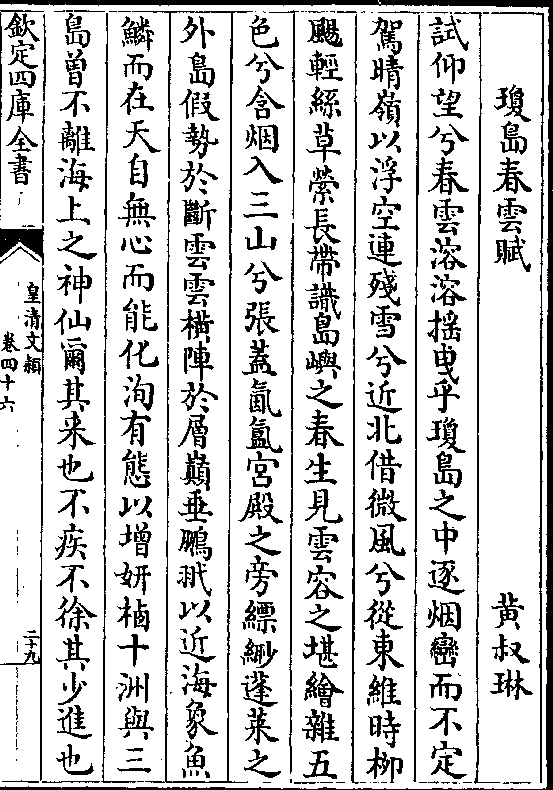 瓊島春雲賦 黄叔琳
試仰望兮春雲溶溶摇曳乎瓊島之中逐烟巒而不定
駕晴嶺以浮空連殘雪兮近北借微風兮從東維時柳
颺輕絲草縈長帶識島嶼之春生見雲容之堪繪雜五
色兮含烟入三山兮張蓋氤氲宫殿之旁縹緲蓬萊之
外島假勢於斷雲雲横陣於層巔垂鵬翄以近海象魚
鱗而在天自無心而能化洵有態以增妍栯十洲與三
島曾不離海上之神仙爾其来也不疾不徐其少進也
欽定四庫全書
皇清文穎
卷四十六
二十九